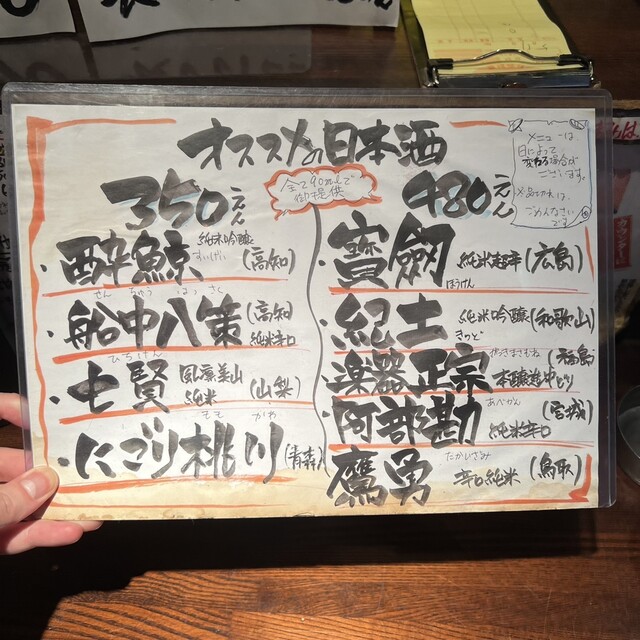 オススメの日本酒
全て90mlで
御提供
メニューは
日によって
変わる場合が
ございます。
※品切れは、
ごめんなさい
です
350えん
酔鯨 純米吟醸 (高知)
すいげい
せんちゅうはっさく
船中八策 (高知)
純米辛口
しちけん
七賢 風凛美山 純米 (山梨)
ももかわ
にごり桃川 (青森)
480えん
寶劔 純米超辛 (広島)
ほうけん
紀土 純米吟醸 (和歌山)
きっど
がっきまさむね
楽器正宗 本醸造中とり (福島)
あべかん
阿部勘 純米辛口 (宮城)
たかいさみ
鷹勇 辛口純米 (鳥取)